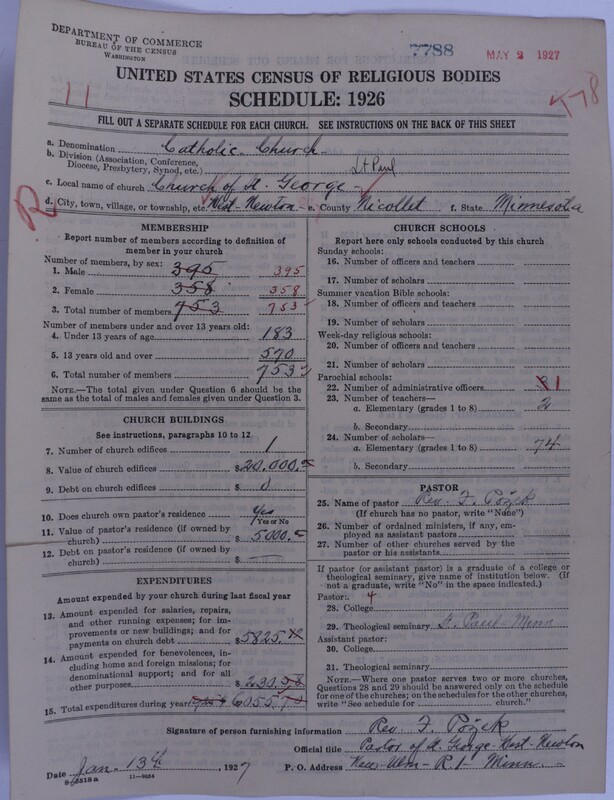 DEPARTMENT OF COMMERCE
BUREAU OF THE CENSUS
WASHINGTON
7788
MAY 2 1927
UNITED STATES CENSUS OF RELIGIOUS BODIES
SCHEDULE: 1926
11
778
FILL OUT A SEPARATE SCHEDULE FOR EACH CHURCH. SEE INSTRUCTIONS ON THE BACK OF THIS SHEET
a. Denomination Catholic Church
b. Division (Association, Conference, Diocese, Presbytery, Synod, etc.) St Paul
c. Local name of church Church of St. George
R
d. City, town, village, or township, etc. West-Newton e. County Nicollet f. State Minnesota
MEMBERSHIP
Report number of members according to definition of member in your church
Number of members, by sex:
1. Male 395 395
2. Female 358 358
3. Total number of members 753 753
Number of members under and over 13 years old:
4. Under 13 years of age 183
5. 13 years old and over 570
6. Total number of members 753
NOTE.—The total given under Question 6 should be the same as the total of males and females given under Question 3.
CHURCH BUILDINGS
See instructions, paragraphs 10 to 12
7. Number of church edifices 1
8. Value of church edifices $20,000.
9. Debt on church edifices $ 0
10. Does church own pastor's residence Yes
Yes or No
11. Value of pastor's residence (if owned by church) $5000.
12. Debt on pastor's residence (if owned by church) $
EXPENDITURES
Amount expended by your church during last fiscal year
13. Amount expended for salaries, repairs, and other running expenses; for improvements or new buildings; and for payments on church debt $5825.
14. Amount expended for benevolences, including home and foreign missions; for denominational support; and for all other purposes $230.
15. Total expenditures during year 6055
CHURCH SCHOOLS
Report here only schools conducted by this church
Sunday schools:
16. Number of officers and teachers
17. Number of scholars
Summer vacation Bible schools:
18. Number of officers and teachers
19. Number of scholars
Week-day religious schools:
20. Number of officers and teachers
21. Number of scholars
Parochial schools:
22. Number of administrative officers 1
23. Number of teachers—
a. Elementary (grades 1 to 8) 2
b. Secondary
24. Number of scholars—
a. Elementary (grades 1 to 8) 74
b. Secondary
PASTOR
25. Name of pastor Rev. F. Požek
(If church has no pastor, write "None")
26. Number of ordained ministers, if any, employed as assistant pastors
27. Number of other churches served by the pastor or his assistants
If pastor (or assistant pastor) is a graduate of a college or theological seminary, give name of institution below. (If not a graduate, write "No" in the space indicated.)
Pastor: 4
28. College
29. Theological seminary St. Paul-Minn
Assistant pastor:
30. College
31. Theological seminary
NOTE.—Where one pastor serves two or more churches, Questions 28 and 29 should be answered only on the schedule for one of the churches; on the schedules for the other churches, write "See schedule for church."
Signature of person furnishing information Rev. F. Požek
Official title Pastor of St. George-West-Newton
Date Jan. 13th, 1927 P. O. Address New-Ulm-R1- Minn.
11—9034